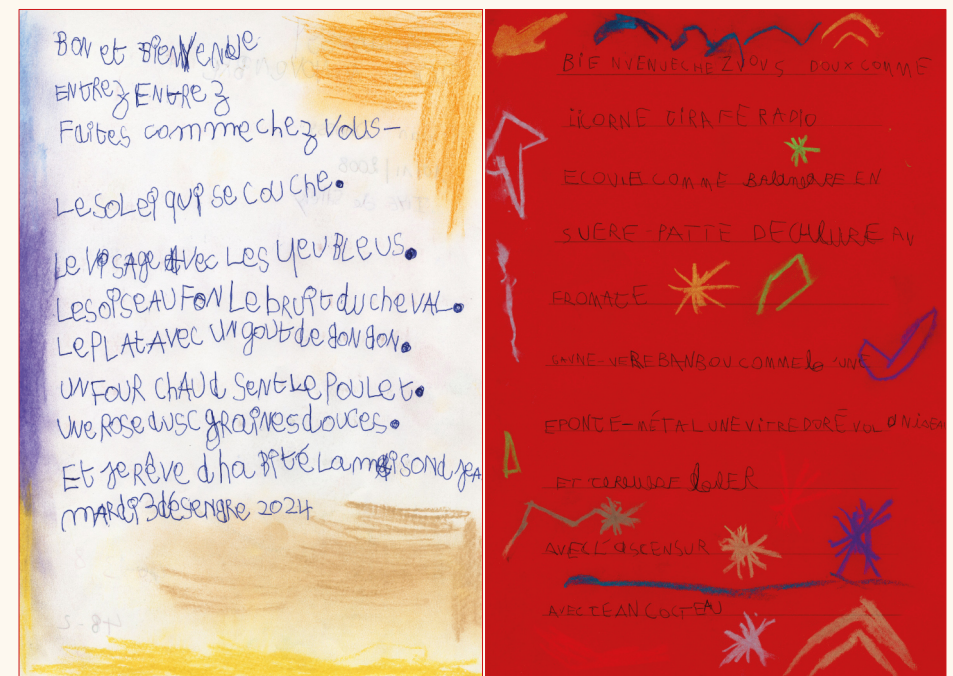 BON et BIENVENUE
ENTREZ ENTREZ
Faites comme chez vous-
Le SOLei qui se couche.
Le VISAGE AVec Les YeU BLeUS.
Les OISEAU FON Le bruit du cheVAL.
Le PLAt AVec UN gout de BON BON.
UN FOUR CHAUd SeNt Le POULet.
UNe ROSe AVSC gRaiNes douces.
Et Je Rêve d'ha Bité La maiSON d JeA
mARdi 3 désengre 2024
BIENVENUE CHEZ VOUS DOUX COMME
GIRAFE RADIO
COMME EN
SUCRE-PATTE AU
FROMAGE
BANBOU COMME UNE
EPONGE-MÉTAL UNE VITRE DORÉ
ET
AVEC L'ASCENSUR
AVEC JEAN COCTEAU